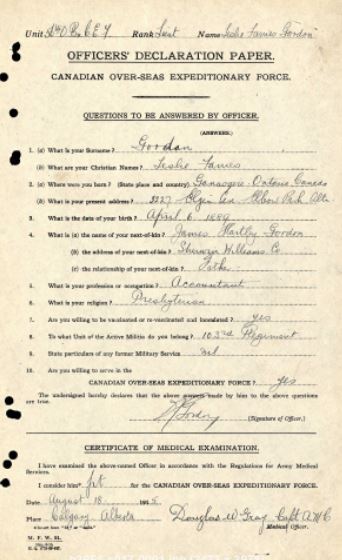 Unit Rank Lieut Name Leslie James Gordon
OFFICERS' DECLARATION PAPER.
CANADIAN OVER-SEAS EXPEDITIONARY FORCE.
QUESTIONS TO BE ANSWERED BY OFFICER.
(ANSWERS.)
1. (a) What is your Surname? Gordon
(b) What are your Christian Names? Leslie James
2. (a) Where were you born? (State place and country). Gananoque Ontario Canada
(b) What is your present address? Elgin Ave Elbow Park Alta
3. What is the date of your birth? April 6 1889
4. What is (a) the name of your next-of-kin? James Hartley Gordon
(b) the address of your next-of-kin? Sherwin Williams Co
(c) the relationship of your next-of-kin? Father
5. What is your profession or occupation? Accountant
6. What is your religion? Presbyterian
7. Are you willing to be vaccinated or re-vaccinated and inoculated? yes
8. To what Unit of the Active Militia do you belong? 103rd Regiment
9. State particulars of any former Military Service nil
10. Are you willing to serve in the
CANADIAN OVER-SEAS EXPEDITIONARY FORCE? yes
The undersigned hereby declares that the above answers made by him to the above questions
are true.
Gordon (Signature of Officer.)
CERTIFICATE OF MEDICAL EXAMINATION.
I have examined the above-named Officer in accordance with the Regulations for Army Medical
Services.
I consider him* fit for the CANADIAN OVER-SEAS EXPEDITIONARY FORCE.
Date August 18 1915
Place Calgary Alberta Douglas W Gray Capt AMC
Medical Officer.
M. F. W. 51.